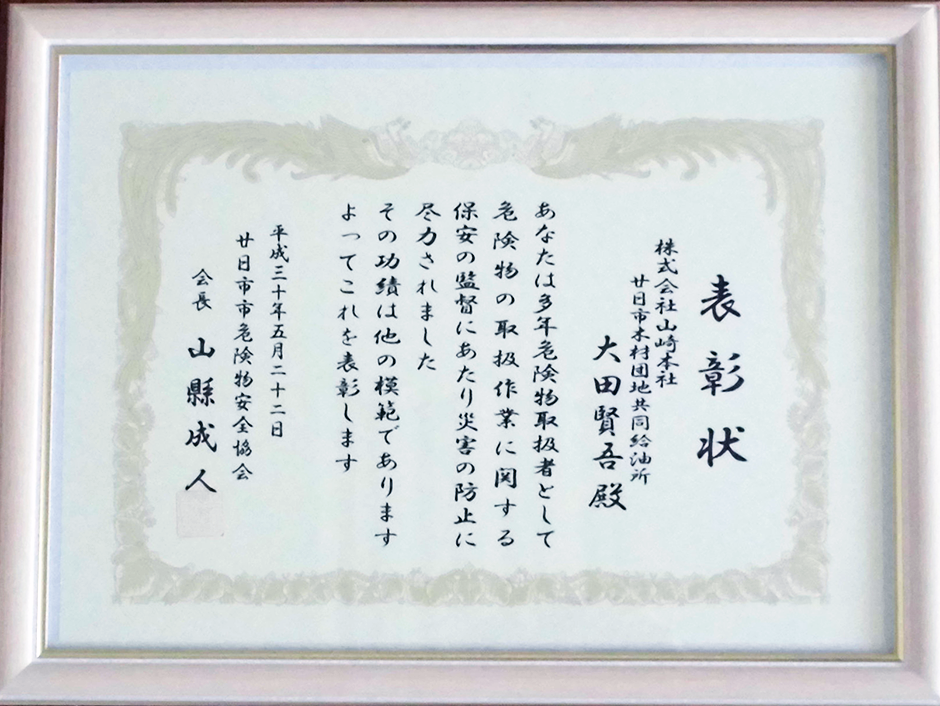 表彰状
株式会社山崎本社
廿日市木材団地共同給油所
大田賢吾殿
あなたは多年危険物取扱者として
危険物の取扱作業に関する
保安の監督にあたり災害の防止に
尽力されました
その功績は他の模範であります
よってこれを表彰します
平成三十年五月二十二日
廿日市市危険物安全協会
会長 山縣成人